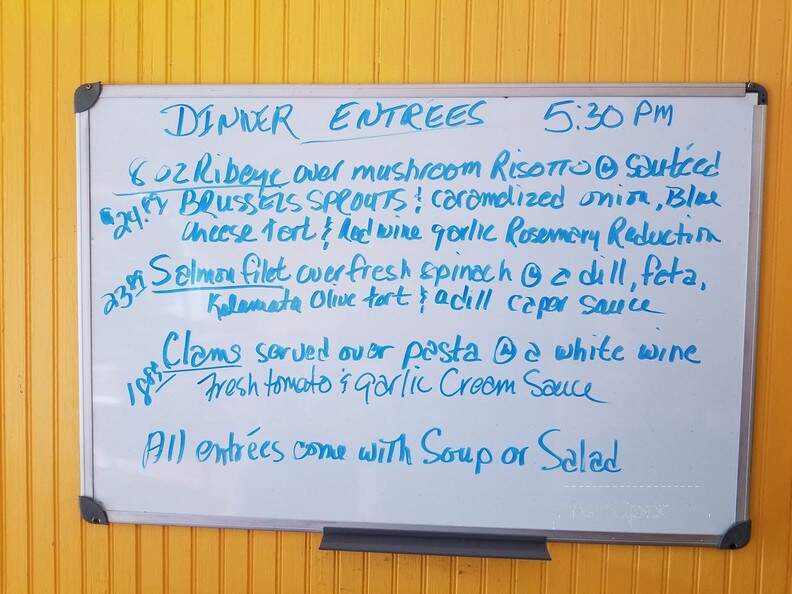 DINNER ENTRÉES 5:30 PM
8 oz Ribeye over mushroom RISOTTO w sautéed
$24.89 BRUSSELS SPROUTS & caramelized onion, Blue
cheese tart & Red wine garlic Rosemary Reduction
23.89 Salmon filet over fresh spinach w a dill, feta,
Kalamata Olive tart & a dill caper sauce
Clams served over pasta w a white wine
18.89 Fresh tomato & garlic Cream Sauce
All entrées come with Soup or Salad